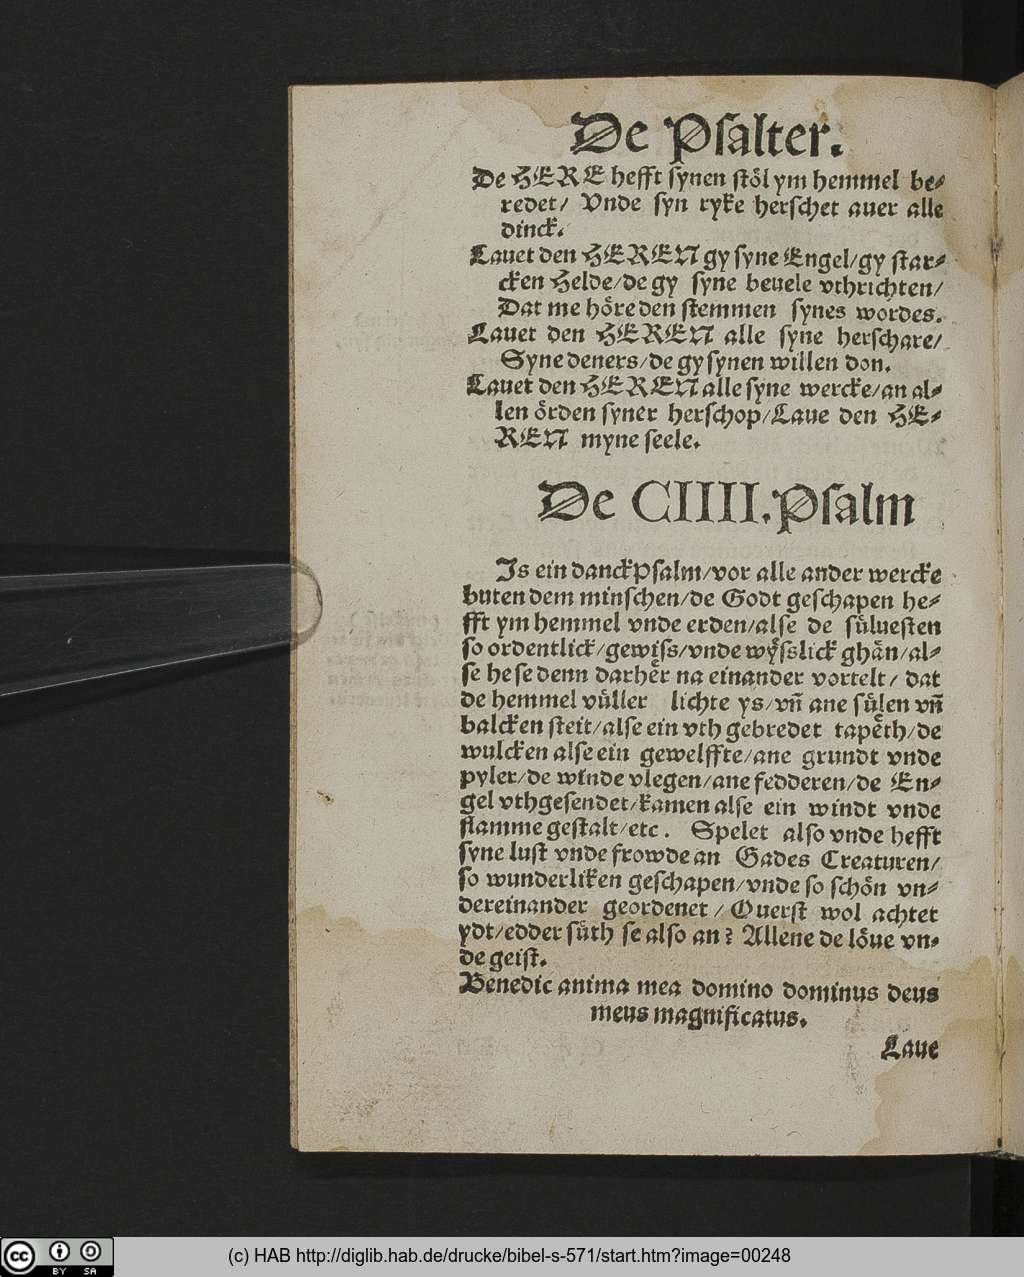 De Psalter.
De HERE hefft synen stöl ym hemmel be⸗
redet/ Vnde syn ryke herschet auer alle
dinck.
Lauet den HEREN gy syne Engel/gy star⸗
cken Helde/de gy syne beuele vthrichten/
Dat me höre den stemmen synes wördes.
Lauet den HEREN alle syne herschare/
Syne deners/de gy synen willen don.
Lauet den HEREN alle syne wercke/an al⸗
len örden syner herschop/Laue den HE⸗
REN myne seele.
De CIIII. Psalm
Js ein danckPsalm/vor alle ander wercke
buten dem minschen/de Godt geschapen he⸗
fft ym hemmel vnde erden/alse de sůluesten
so ordentlick/gewiss/vnde wyͤsslick ghån/al⸗
se he se denn darheͤr na einander vortelt/ dat
de hemmel vůller lichte ys/vn̄ ane sůlen vn̄
balcken steit/alse ein vth gebredet tapeͤth/de
wulcken alse ein gewelffte/ane grundt vnde
pyler/de winde vlegen/ane fedderen/de En⸗
gel vthgesendet/kamen alse ein windt vnde
flamme gestalt/etc. Spelet also vnde hefft
syne lust vnde frowde an Gades Creaturen/
so wunderliken geschapen/vnde so schön vn⸗
dereinander geordenet/ Ouerst wol achtet
ydt/edder sůth se also an? Allene de löue vn⸗
de geist.
Benedic anima mea domino dominus deus
meus magnificatus.
Laue
(c) HAB http://diglib.hab.de/drucke/bibel-s-571/start.htm?image=00248
cc BY SA